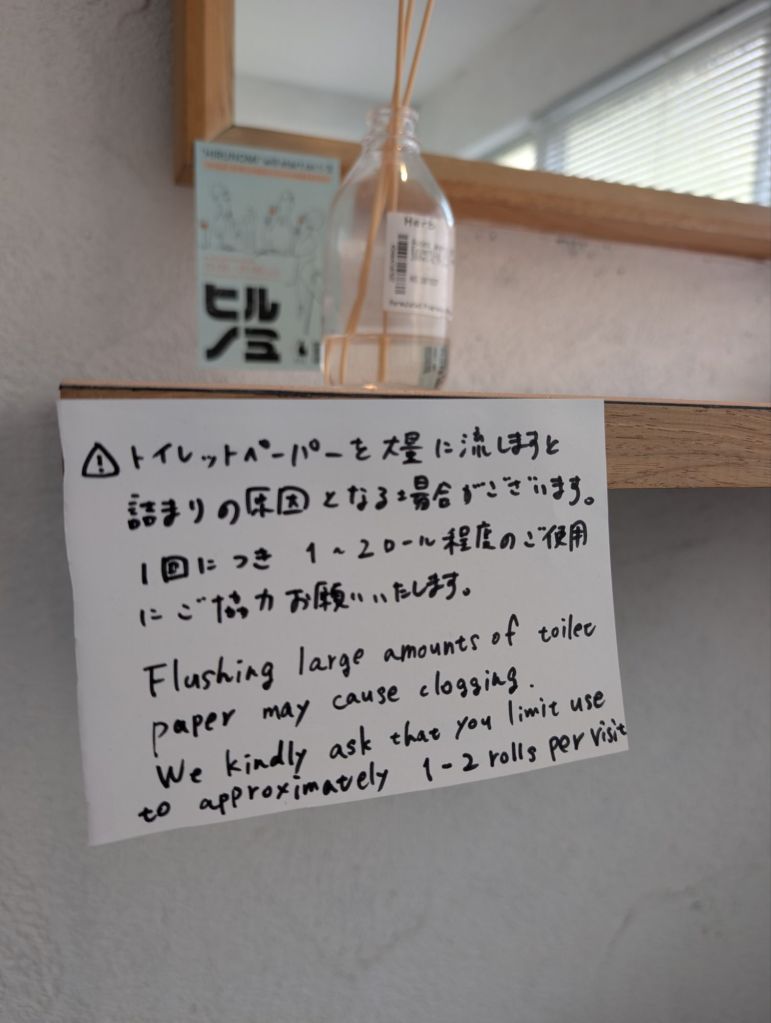 ヒル
ノミ
Herb
⚠トイレットペーパーを大量に流しますと
詰まりの原因となる場合がございます。
1回につき 1~2ロール程度のご使用
にご協力お願いいたします。
Flushing large amounts of toilet
paper may cause clogging.
We kindly ask that you limit use
to approximately 1-2 rolls per visit